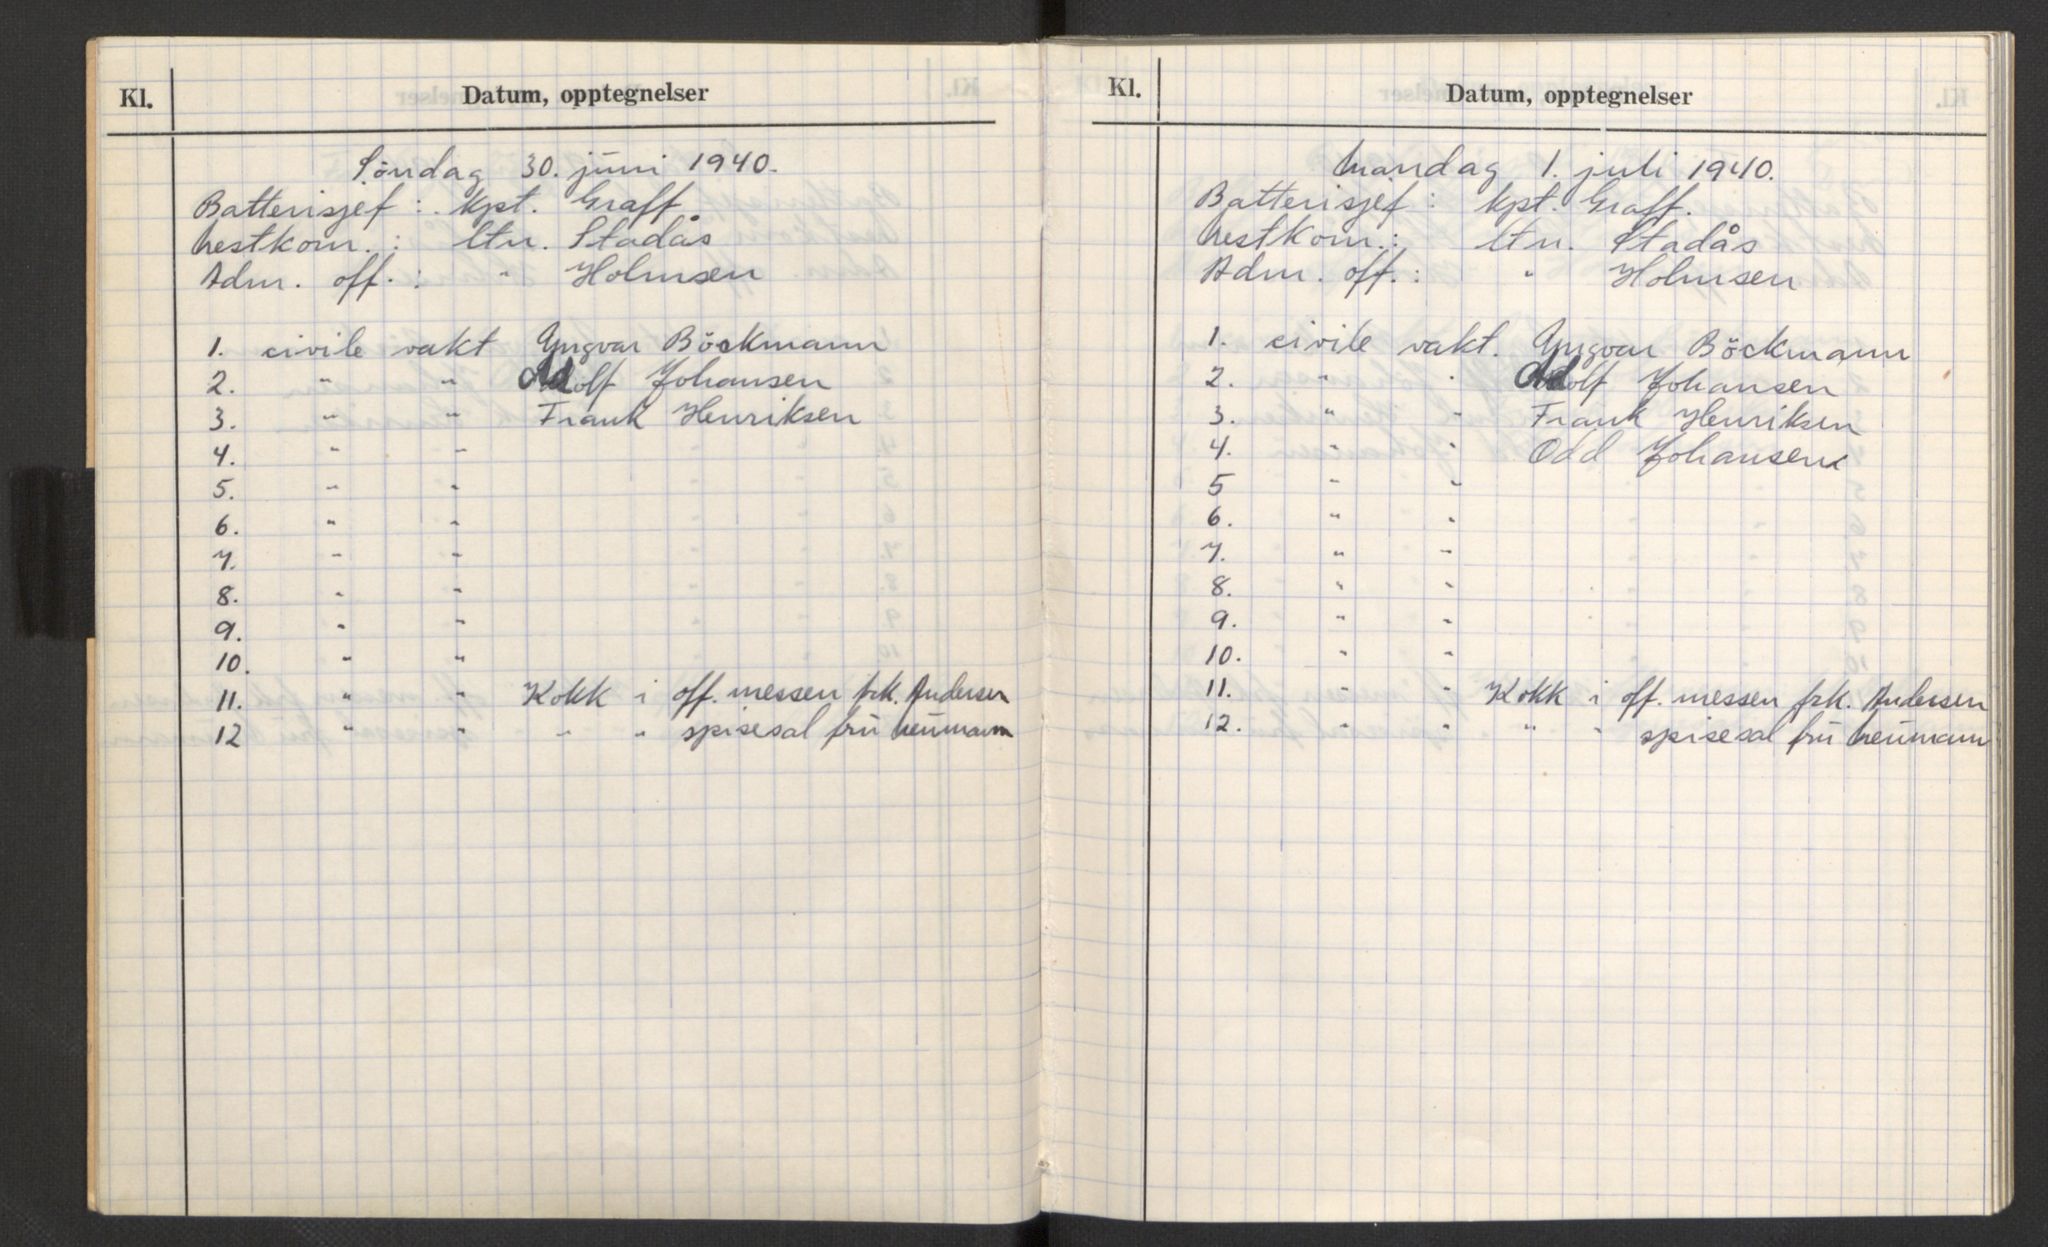 Kl. Datum, opptegnelser
Söndag 30. juni 1940.
Batterisjef : Kpt. Graff
Nestkom. : ltn. Stadås
Adm. off. : " Holmsen
1. civile vakt Yngvar Böckmann
2. " " Adolf Johansen
3. " " Frank Henriksen
4. " "
5. " "
6. " "
7. " "
8. " "
9. " "
10. " "
11. " " Kokk i off. messen frk. Andersen
12 " " " " spisesal fru Neumann
Kl. Datum, opptegnelser
Mandag 1. juli 1940.
Batterisjef : Kpt. Graff.
Nestkom. : ltn. Stadås
Adm. off. : " Holmsen
1. civile vakt. Yngvar Böckmann
2. " " Adolf Johansen
3. " " Frank Henriksen
4. " " Odd Johansen
5 " "
6. " "
7. " "
8. " "
9. " "
10. " "
11. " " Kokk i off. messen frk. Andersen
12. " " " " spisesal fru Neumann